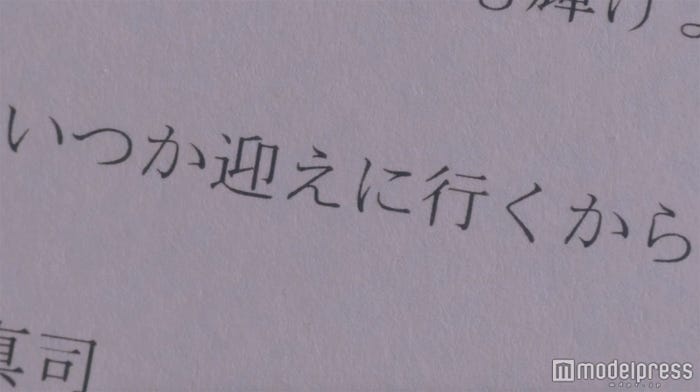 も輝けよ
いつか迎えに行くから
真司
modelpress